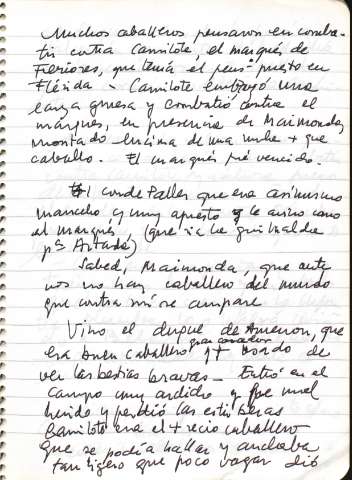 Muchos caballeros pensaron en comba-
tir contra Camilote, el marqués de
que tenía el pens. puesto en
Flérida - Camilote embrazó una
lanza gruesa y combatió contra el
marqués, en presencia de Maimonda,
montado encima de una nube + que
caballo. El marqués fué vencido.
El conde que era asimismo
mancebo y muy apuesto y le avino como
al marqués,
Sabed, Maimonda, que ante
vos no hay caballero del mundo
que contra mí se ampare
Vino el duque de que
era buen caballero gran cazador y + usado de
ver las bestias bravas - Entró en el
campo muy ardido y fue mal
herido y perdió las estriberas
Camilote era el + recio caballero
que se podía hallar y andaba
tan ligero que poco vagar dió